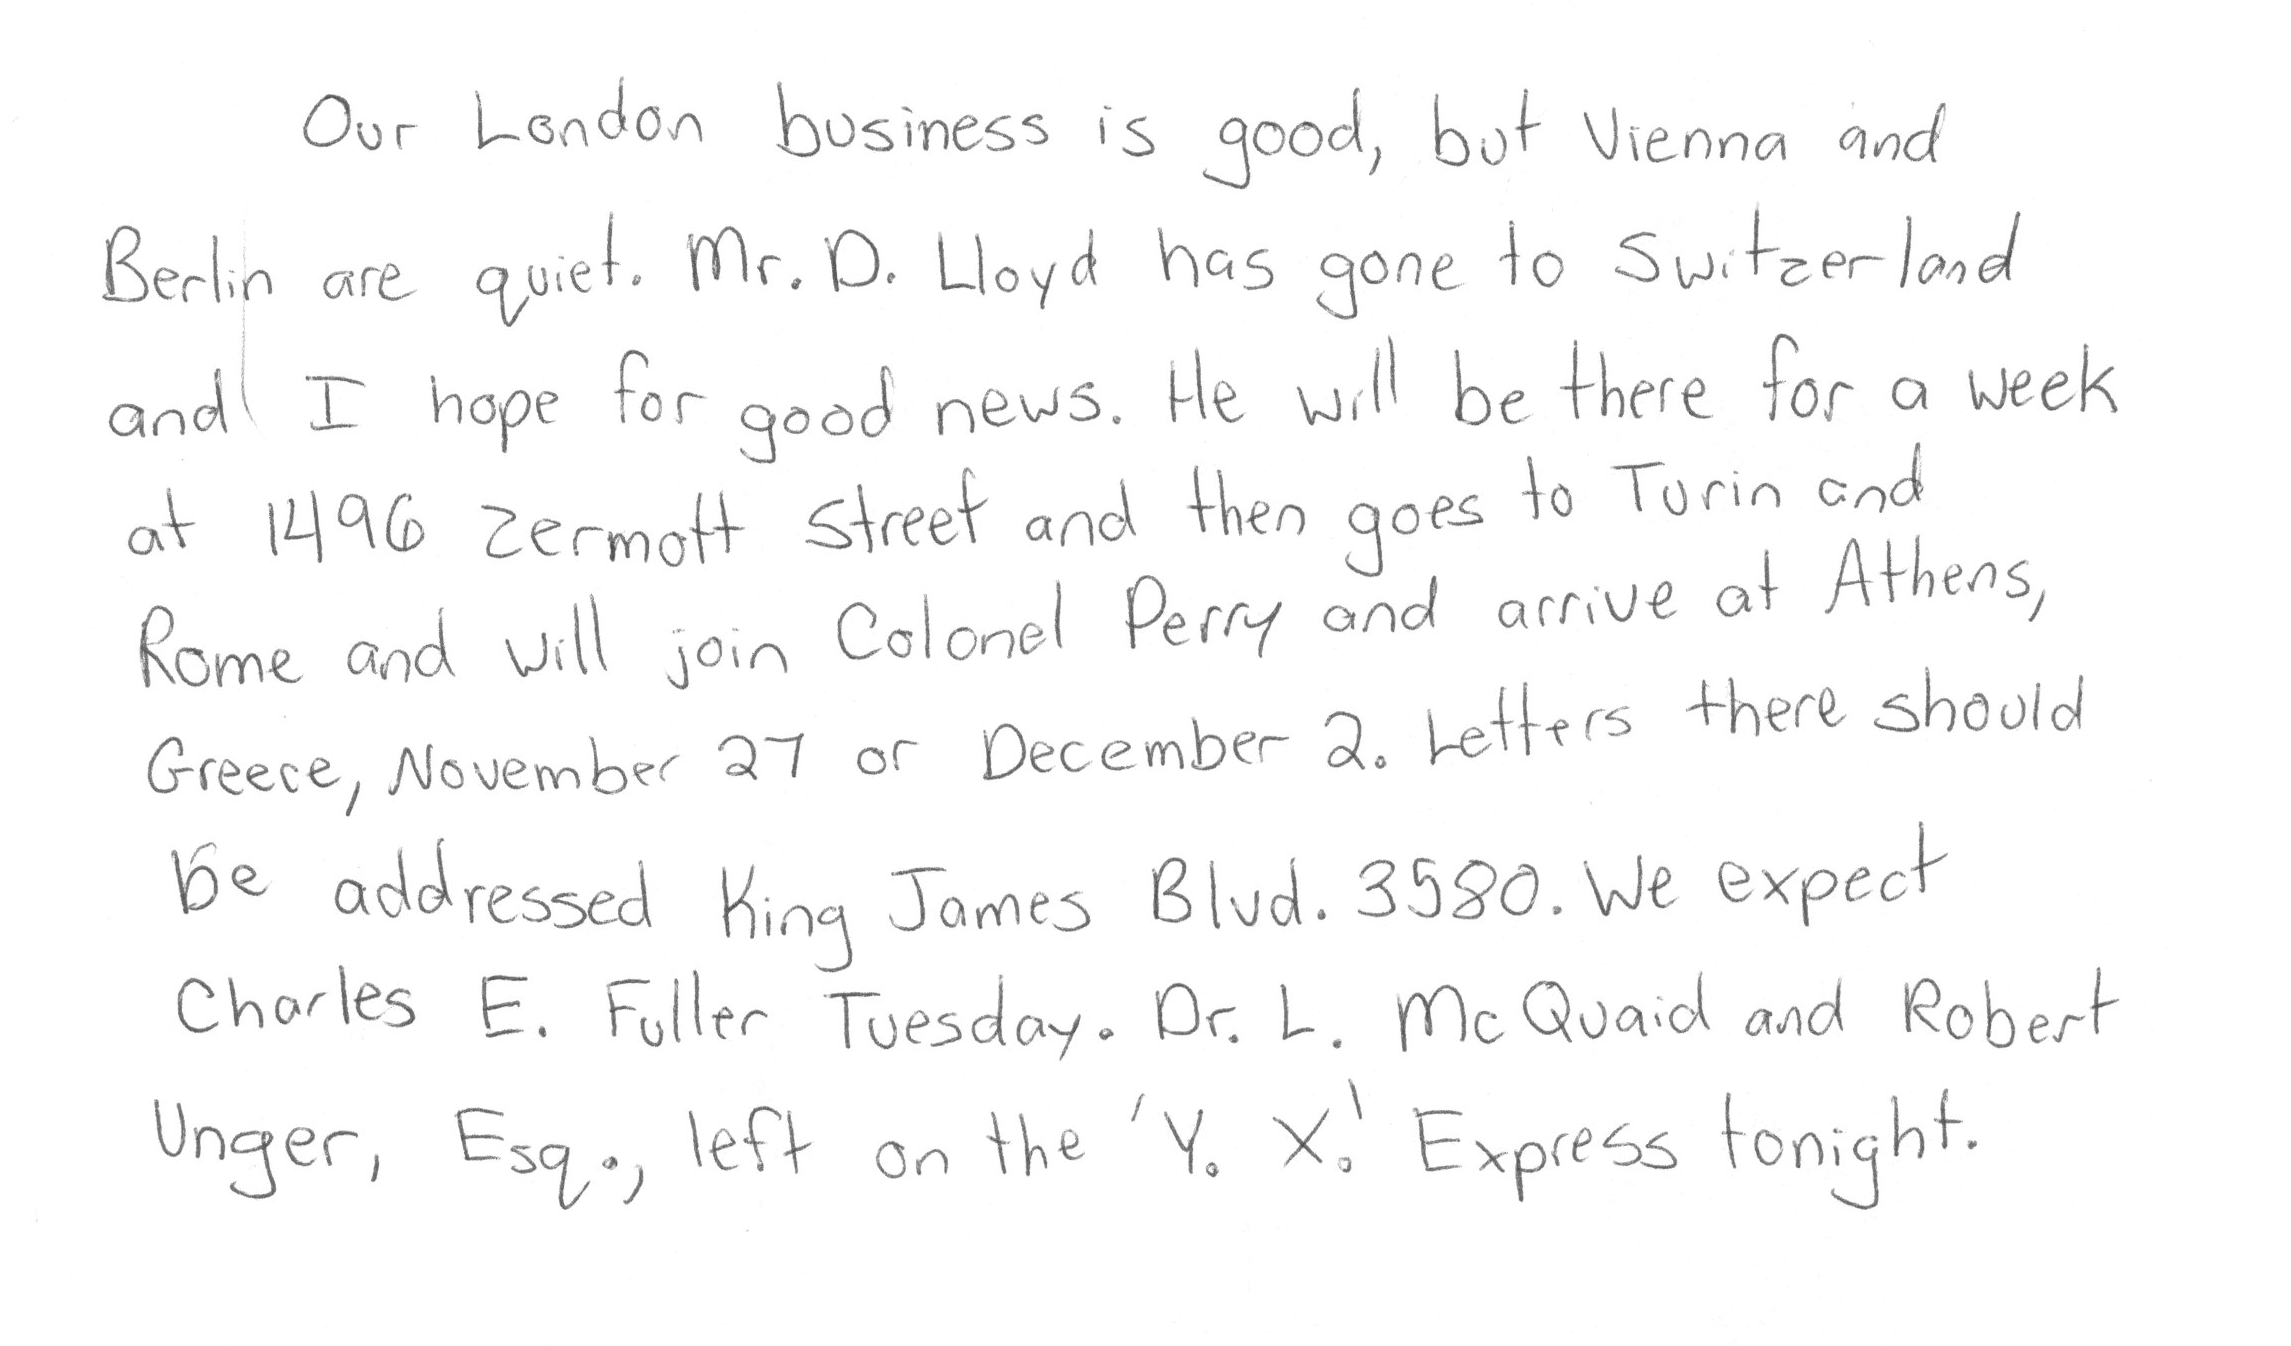 Our London business is good, but Vienna and
Berlin are quiet. Mr. D. Lloyd has gone to Switzerland
and I hope for good news. He will be there for a week
at 1496 Zermott Street and then goes to Turin and
Rome and will join Colonel Perry and arrive at Athens,
Greece, November 27 or December 2. Letters there should
be addressed King James Blvd. 3580. We expect
Charles E. Fuller Tuesday. Dr. L. McQuaid and Robert
Unger, Esq., left on the 'Y. X.' Express tonight.